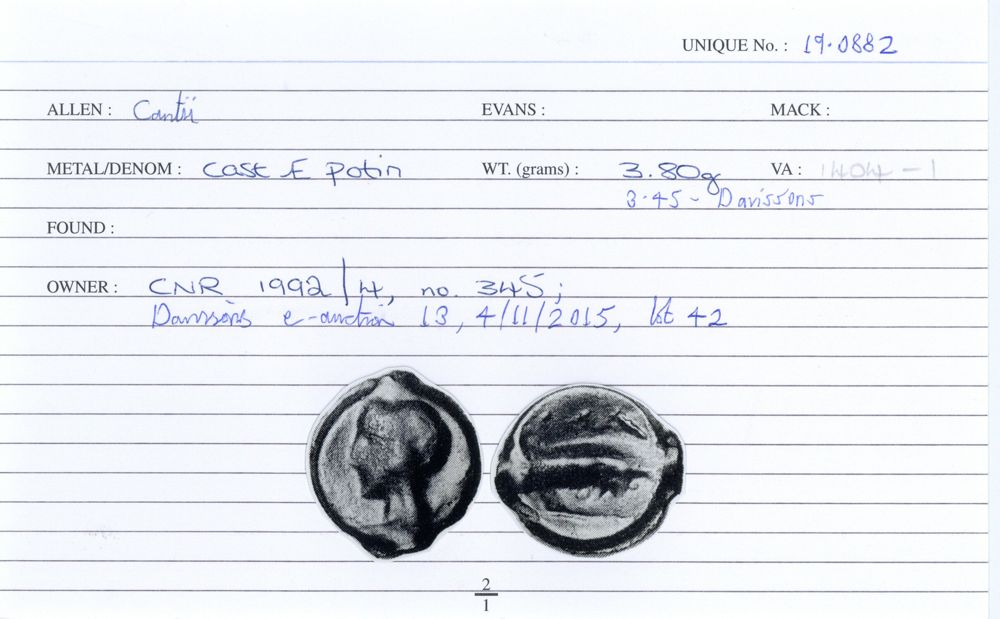 UNIQUE No. : 19.0882
ALLEN : Cantii EVANS : MACK :
METAL/DENOM : Cast Æ Potin WT. (grams) : 3.80g VA : 1404-1
3.45 - Davissons
FOUND :
OWNER : CNR 1992/4, no. 345;
Davissons e-auction 13, 4/11/2015, lot 42
2
1